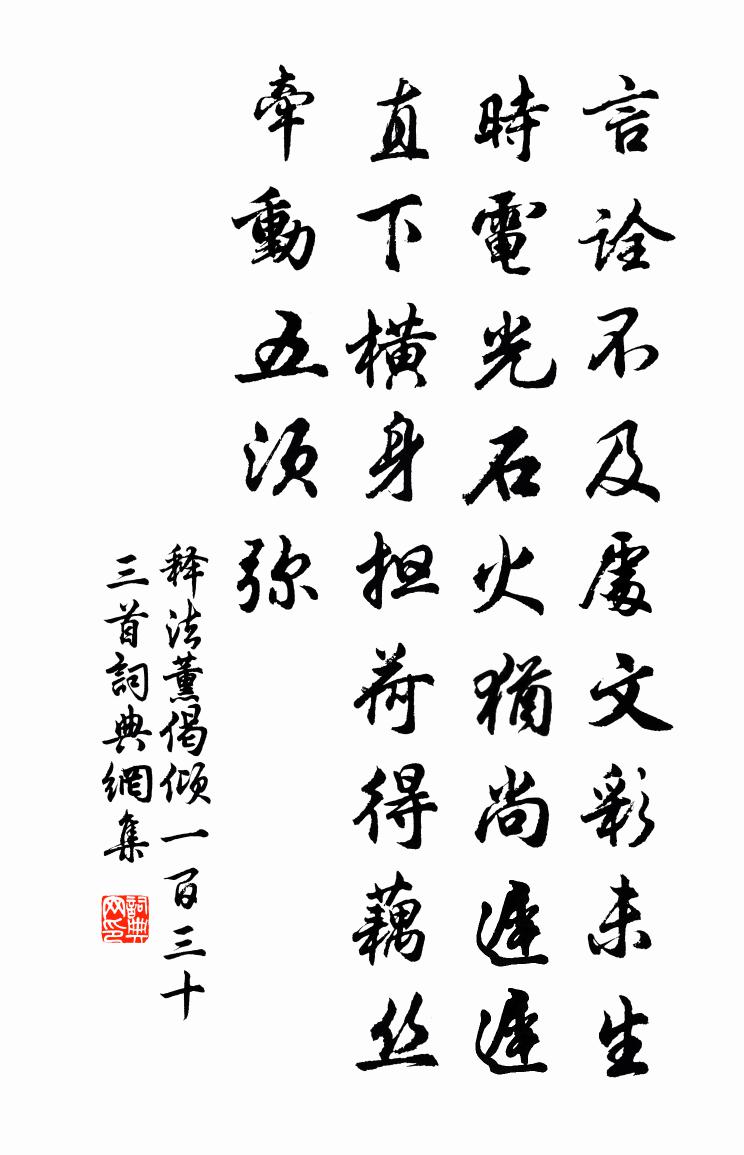 言詮不及處文彩未生
時電光石火猶尚遲遲
直下橫身担荷得藕丝
牽動五须弥
释法薰偈倾一百三十
三首詞典網集
詞典网印